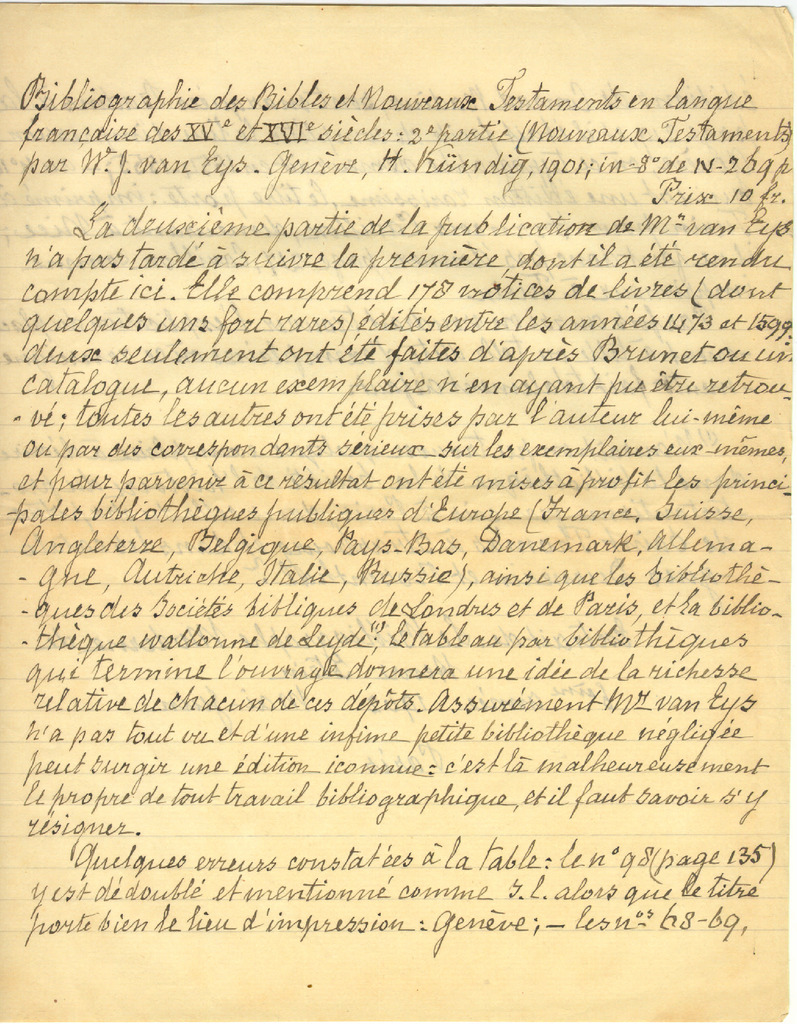 Bibliographie des Bibles et Nouveaux Testaments en langue
française des XVe et XVIe siècles : 2e partie (Nouveaux Testaments)
par W. J. van Eys. Genève, H. Kündig, 1901; in-8o de IV-269 p
Prix 10 fr.
La deuxième partie de la publication de Mr van Eys
n'a pas tardé à suivre la première dont il a été rendu
compte ici. Elle comprend 178 notices de livres (dont
quelques uns fort rares) édités entre les années 1473 et 1599:
deux seulement ont été faites d'après Brunet ou un
catalogue, aucun exemplaire n'en ayant pu être retrou-
-vé; toutes les autres ont été prises par l'auteur lui-même
ou par des correspondants sérieux sur les exemplaires eux-mêmes,
et pour parvenir à ce résultat ont été mises à profit les princi-
-pales bibliothèques publiques d'Europe (France, Suisse,
Angleterre, Belgique, Pays-Bas, Danemark, Allema-
-gne, Autriche, Italie, Russie), ainsi que les bibliothè-
-ques des Sociétés bibliques de Londres et de Paris, et la biblio-
-thèque wallonne de Leyde(1); le tableau par bibliothèques
qui termine l'ouvrage donnera une idée de la richesse
relative de chacun de ces dépôts. Assurément Mr van Eys
n'a pas tout vu et d'une infime petite bibliothèque négligée
peut surgir une édition iconnue : c'est là malheureusement
le propre de tout travail bibliographique, et il faut savoir s'y
résigner.
Quelques erreurs constatées à la table : le no 98 (page 135)
y est dédoublé et mentionné comme s. l. alors que le titre
porte bien le lieu d'impression : Genève; - les nos 68-69,